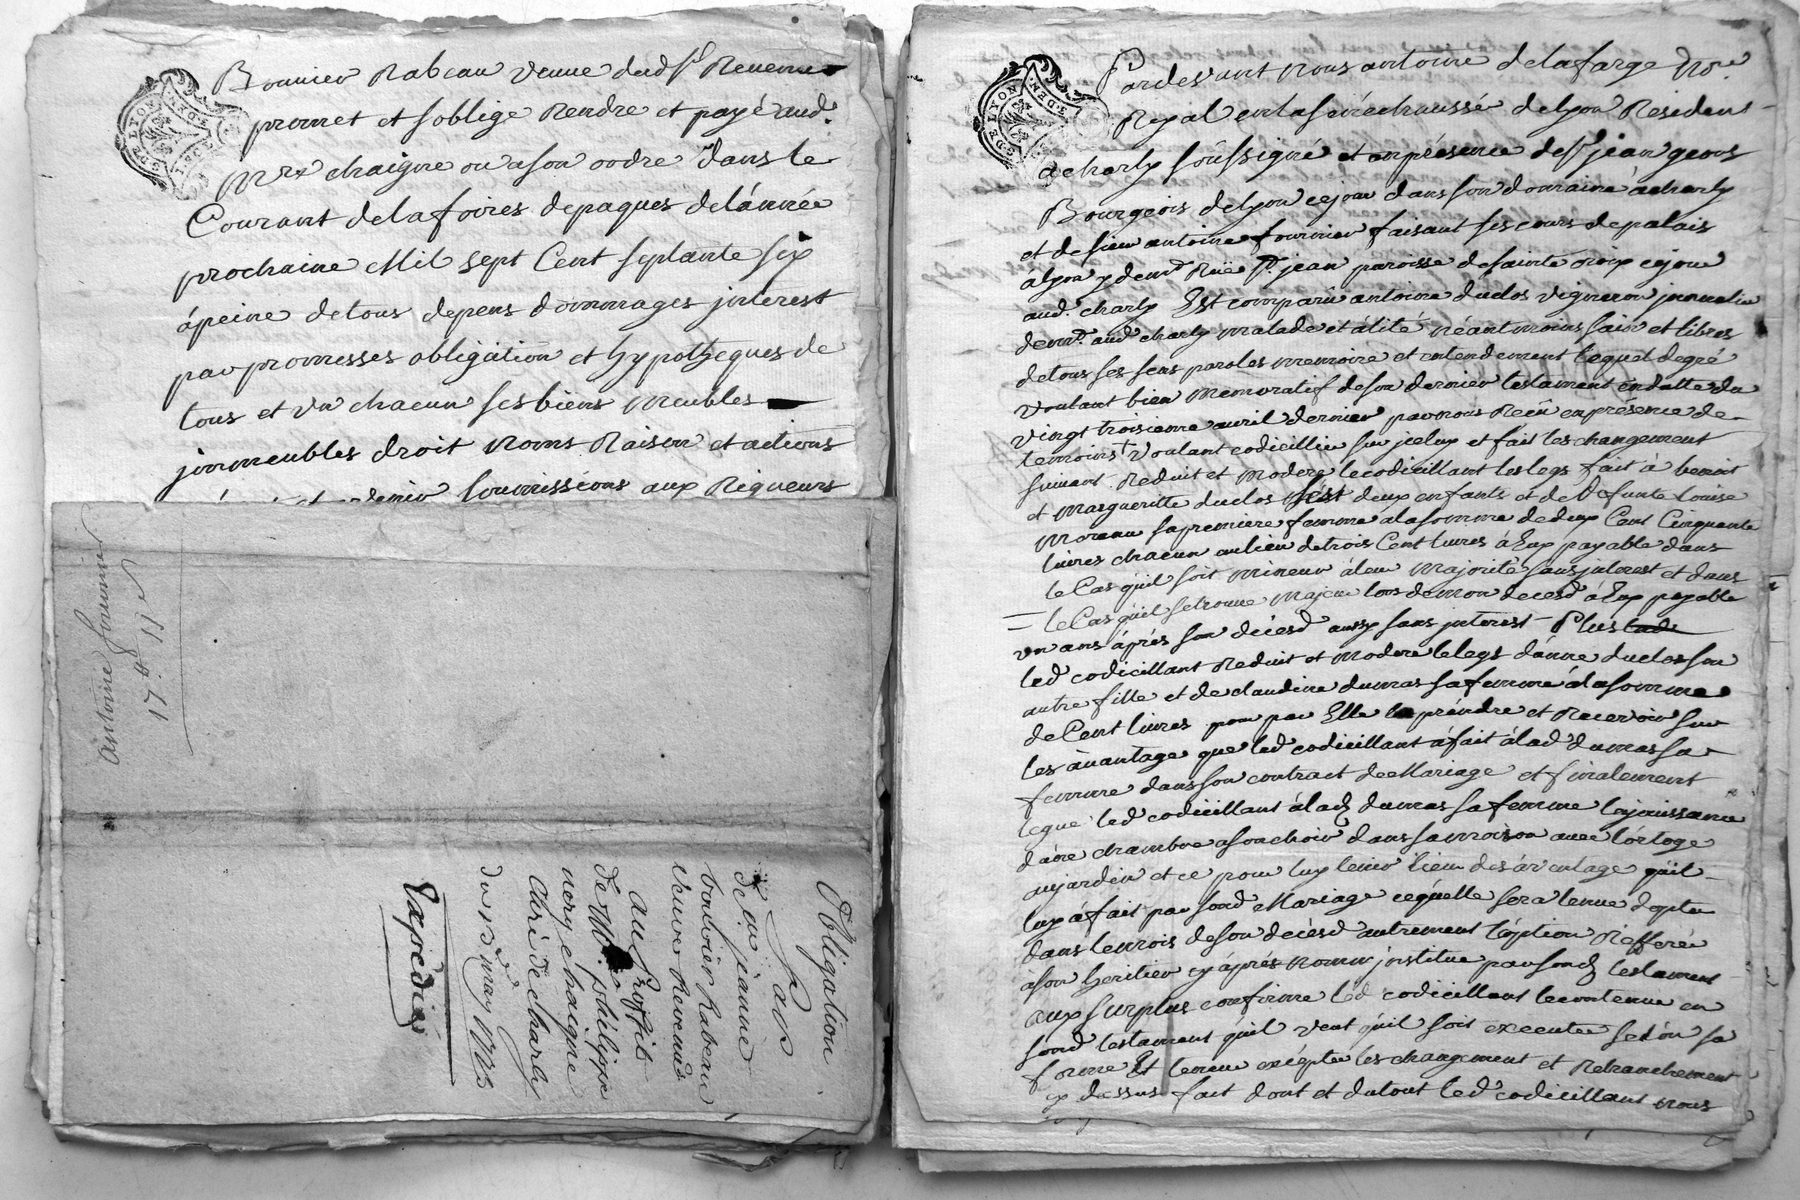 Bouvier Rabeau veuve dud Sr Revenu
promet et soblige Rendre et payé aud.
Mre chaigne ou a son ordre dans le
Courant de la foires de paques de lánnée
prochaine Mil sept Cent septante six
ápeine de tous depens dommages interest
par promesses obligation et hypotheques de
tous et vn chacun ses biens Meubles
jmmeubles droit Noms Raison et actions
soumissions aux Rigueurs
antoine fournier
Obligation
par
de jeanne
bouvier Rabeau
veuve Revenu
au Proffit
de Mre philippe
nery chaigne
Curé de charly
du 13 may 1775
Expédiée
DE LYON
Pardevant Nous antoine delafarge Nore
Royal en la sénéchaussée de Lyon Resident
a charly soussigné et en présence de Sr jean geors
Bourgeois de Lyon cejour dans son domaine a charly
et de sieur antoine fournier faisant ses cours de palais
a Lyon y demt Rüe St jean paroisse de sainte croix cejour
aud. charly Est comparu antoine duclos vigneron journalier
demt. aud charly malade et álité Néantmoins sain et libres
de tous ses sens paroles memoire et entendement lequel de gré
voulant bien Memoratif de son dernier testament en datte du
vingt troisieme avril dernier par nous Reçu en présence de
temoins voulant codicillier sur jceluy et fait les changement
suivant. Reduit et Modere le codicillant les legs fait à benoit
et Margueritte duclos deux enfants et de deffunte Louise
Moreau sa premiere femme a la somme de deux Cent Cinquante
livres chacun au lieu de trois Cent livres á Eux payable dans
le Cas quil soit mineur á leur Majorité sans jnterest et dans
le Cas quil se trouve Majeur lors de mon decesd á Eux payable
vn ans áprés son décesd aussy sans jnterest Plus
led codicillant Reduit et Modere le legs dánne duclos son
autre fille et de claudine dumas sa femme a la somme
de Cent livres pour par Elle le préndre et Recevoir sur
les ávantage que led codicillant á fait á lad dumas sa
femme dans son contract de Mariage et finalement
legue led codicillant á lad dumas sa femme la jouissance
dúne chambre a son choix dans sa maison avec l'orloge
au jardin et ce pour luy tenir lieu des ávantage quil
luy á fait par sond Mariage ce quelle sera tenue dopter
dans le mois de son décesd autrement l'óption Refferée
áson heritier cy áprés nommé jnstitué par sond testament
aux surplus confirme led codicillant le contenue en
sond testament quil veut quil soit executer selon sa
forme Et teneur excépter les changement et Retranchement
cy dessus fait dont et du tout led codicillant nous